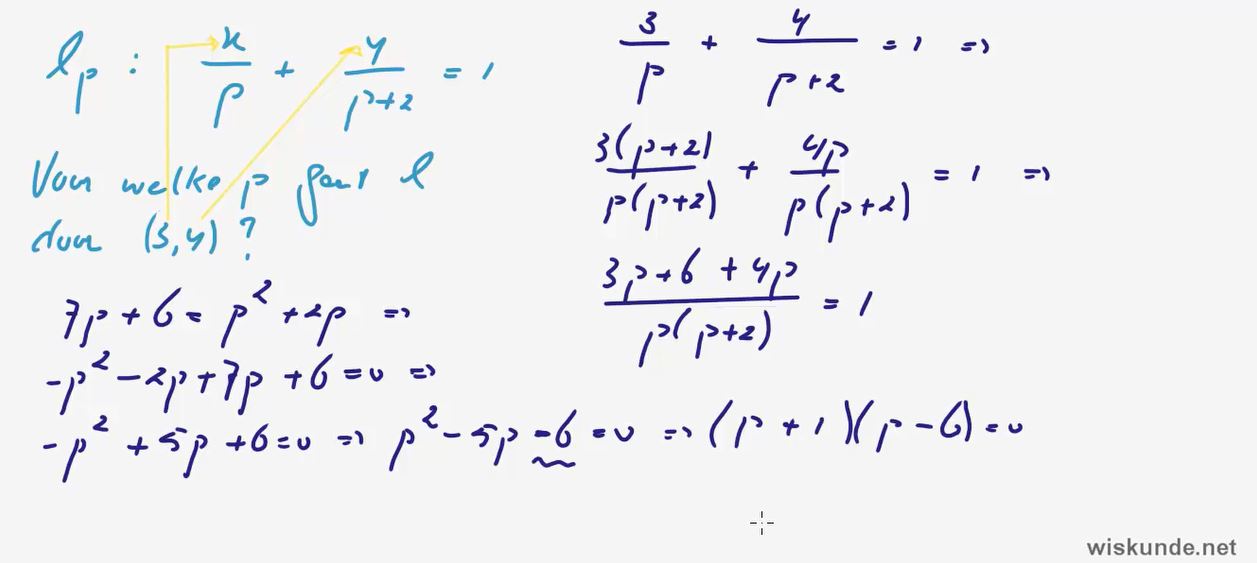 lₚ : x/p + y/(p+2) = 1
Voor welke p gaat l
door (3,4) ?
3/p + 4/(p+2) = 1 =>
3(p+2)/(p(p+2)) + 4p/(p(p+2)) = 1 =>
(3p+6+4p)/(p(p+2)) = 1
7p+6 = p² + 2p =>
-p² - 2p + 7p + 6 = 0 =>
-p² + 5p + 6 = 0 => p² - 5p - 6 = 0 => (p+1)(p-6) = 0
wiskunde.net